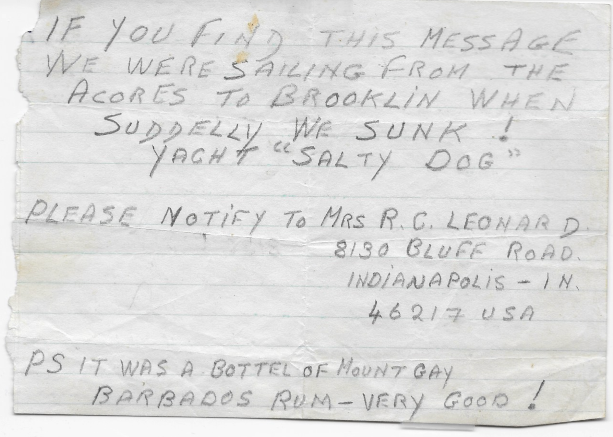 IF YOU FIND THIS MESSAGE
WE WERE SAILING FROM THE
ACORES TO BROOKLIN WHEN
SUDDELLY WE SUNK !
YACHT "SALTY DOG"
PLEASE NOTIFY TO MRS R.C. LEONARD.
8130 BLUFF ROAD.
INDIANAPOLIS - IN.
46217 USA
PS IT WAS A BOTTEL OF MOUNT GAY
BARBADOS RUM - VERY GOOD !